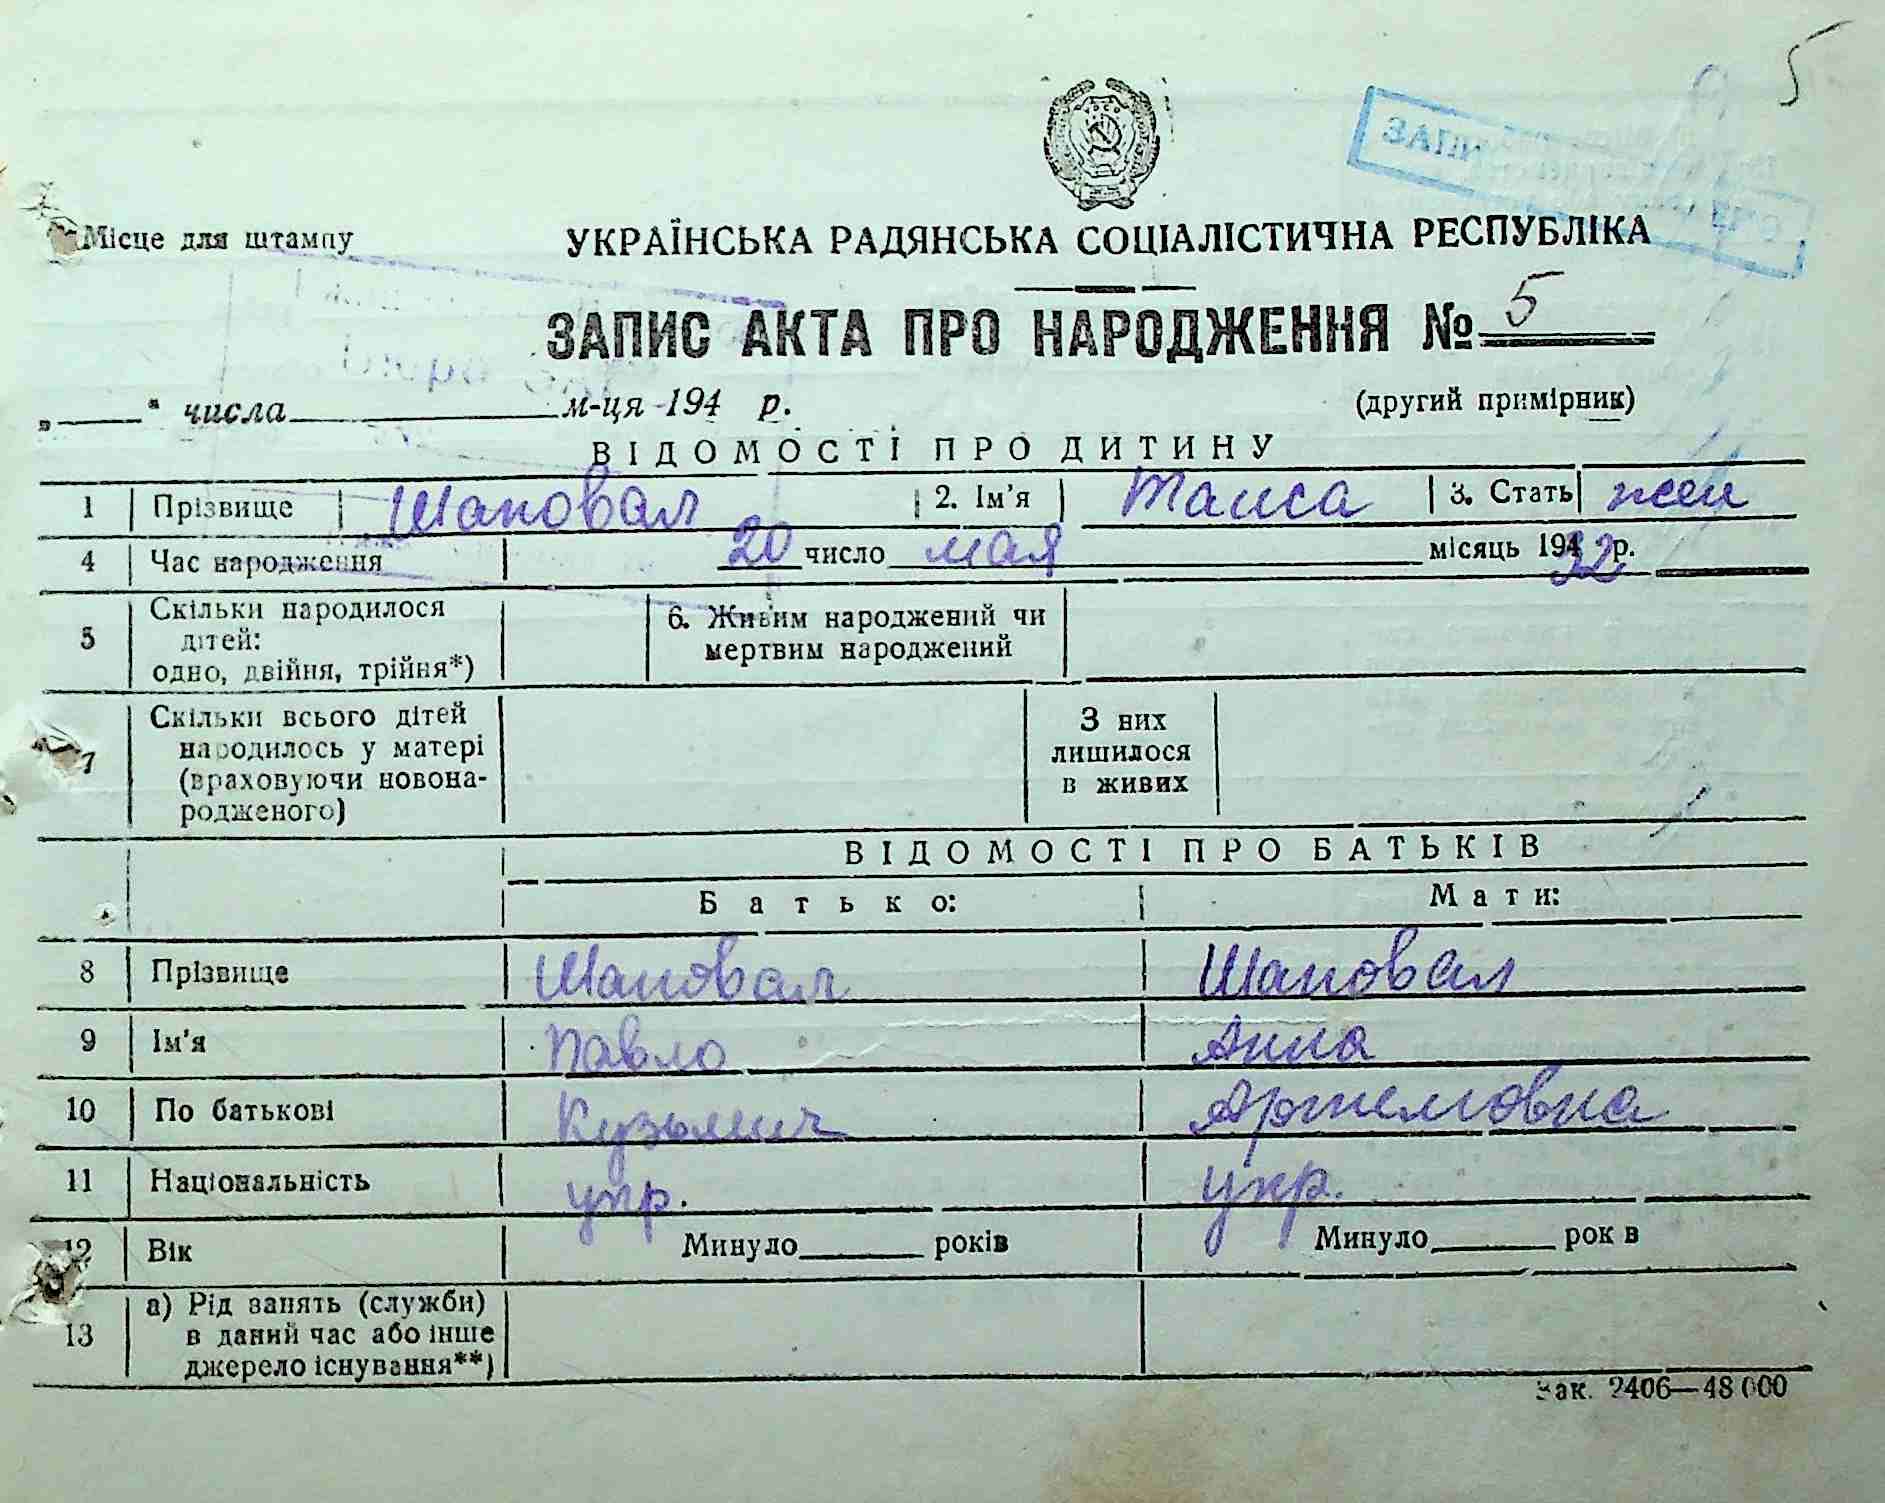 5
Місце для штампу
УКРАЇНСЬКА РАДЯНСЬКА СОЦІАЛІСТИЧНА РЕСПУБЛІКА
ЗАПИС АКТА ПРО НАРОДЖЕННЯ № 5
„ “ числа м-ця 194 р.
(другий примірник)
ВІДОМОСТІ ПРО ДИТИНУ
1 Прізвище Шаповал 2. Ім'я Таиса 3. Стать жен
4 Час народження 20 число мая місяць 1932 р.
5 Скільки народилося дітей: одно, двійня, трійня*)
6. Живим народжений чи мертвим народжений
7 Скільки всього дітей народилось у матері (враховуючи новонародженого)
З них лишилося в живих
ВІДОМОСТІ ПРО БАТЬКІВ
Батько: Мати:
8 Прізвище Шаповал Шаповал
9 Ім'я Павло Анна
10 По батькові Кузьмич Артемовна
11 Національність укр. укр.
12 Вік Минуло років Минуло рок в
13 а) Рід занять (служби) в даний час або інше джерело існування**)
Зак. 2406—48 000